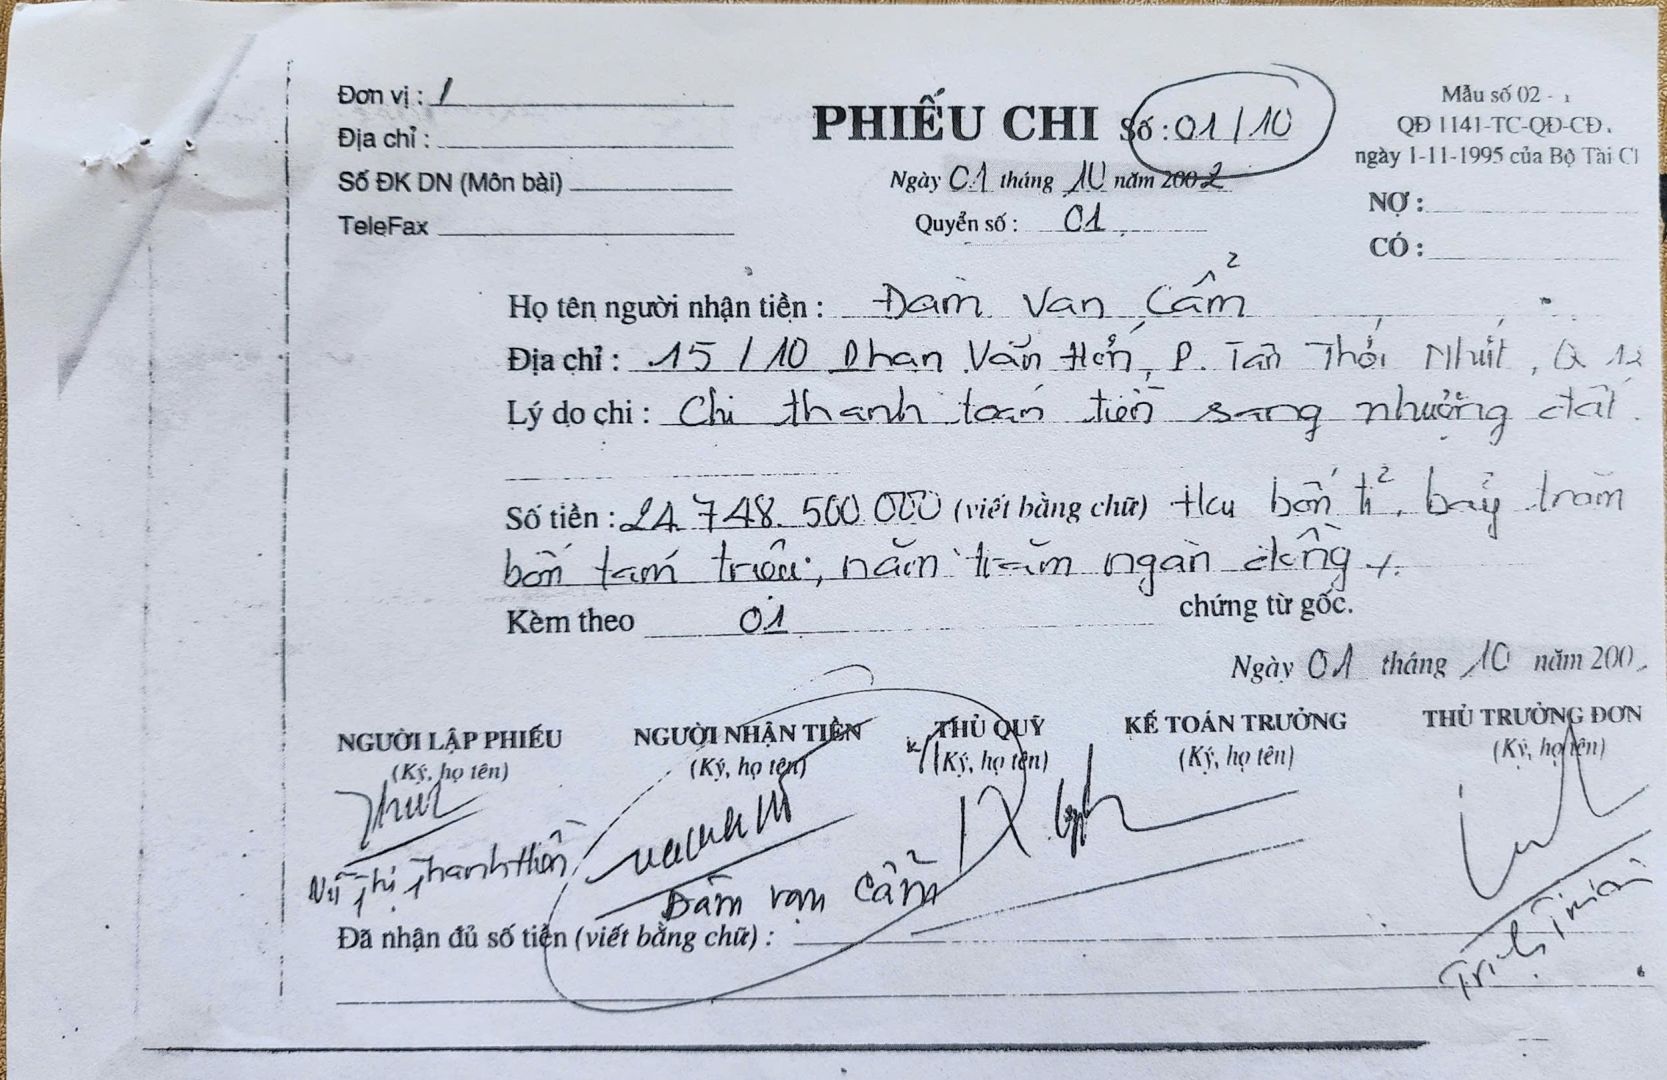 Đơn vị : /
Địa chỉ :
Số ĐK DN (Môn bài)
TeleFax
PHIẾU CHI Số : 01/10
Ngày 01 tháng 10 năm 2002
Quyển số : 01
Mẫu số 02 -
QĐ 1141-TC-QĐ-CĐ
ngày 1-11-1995 của Bộ Tài C
NỢ :
CÓ :
Họ tên người nhận tiền : Đàm Van Cẩm
Địa chỉ : 15/10 Phan Văn Hớn, P. Tân Thới Nhứt, Q 12
Lý do chi : Chi thanh toán tiền sang nhưởng đất.
Số tiền : 24.748.500.000 (viết bằng chữ) Hai bốn tỉ, bảy trăm
bốn tám triệu, năm trăm ngàn đồng
Kèm theo 01 chứng từ gốc.
Ngày 01 tháng 10 năm 200
NGƯỜI LẬP PHIẾU
(Ký, họ tên)
NGƯỜI NHẬN TIỀN
(Ký, họ tên)
THỦ QUỸ
(Ký, họ tên)
KẾ TOÁN TRƯỞNG
(Ký, họ tên)
THỦ TRƯỞNG ĐƠN
(Ký, họ tên)
Thị Thanh Hiền
Đàm Van Cẩm
Đã nhận đủ số tiền (viết bằng chữ) :